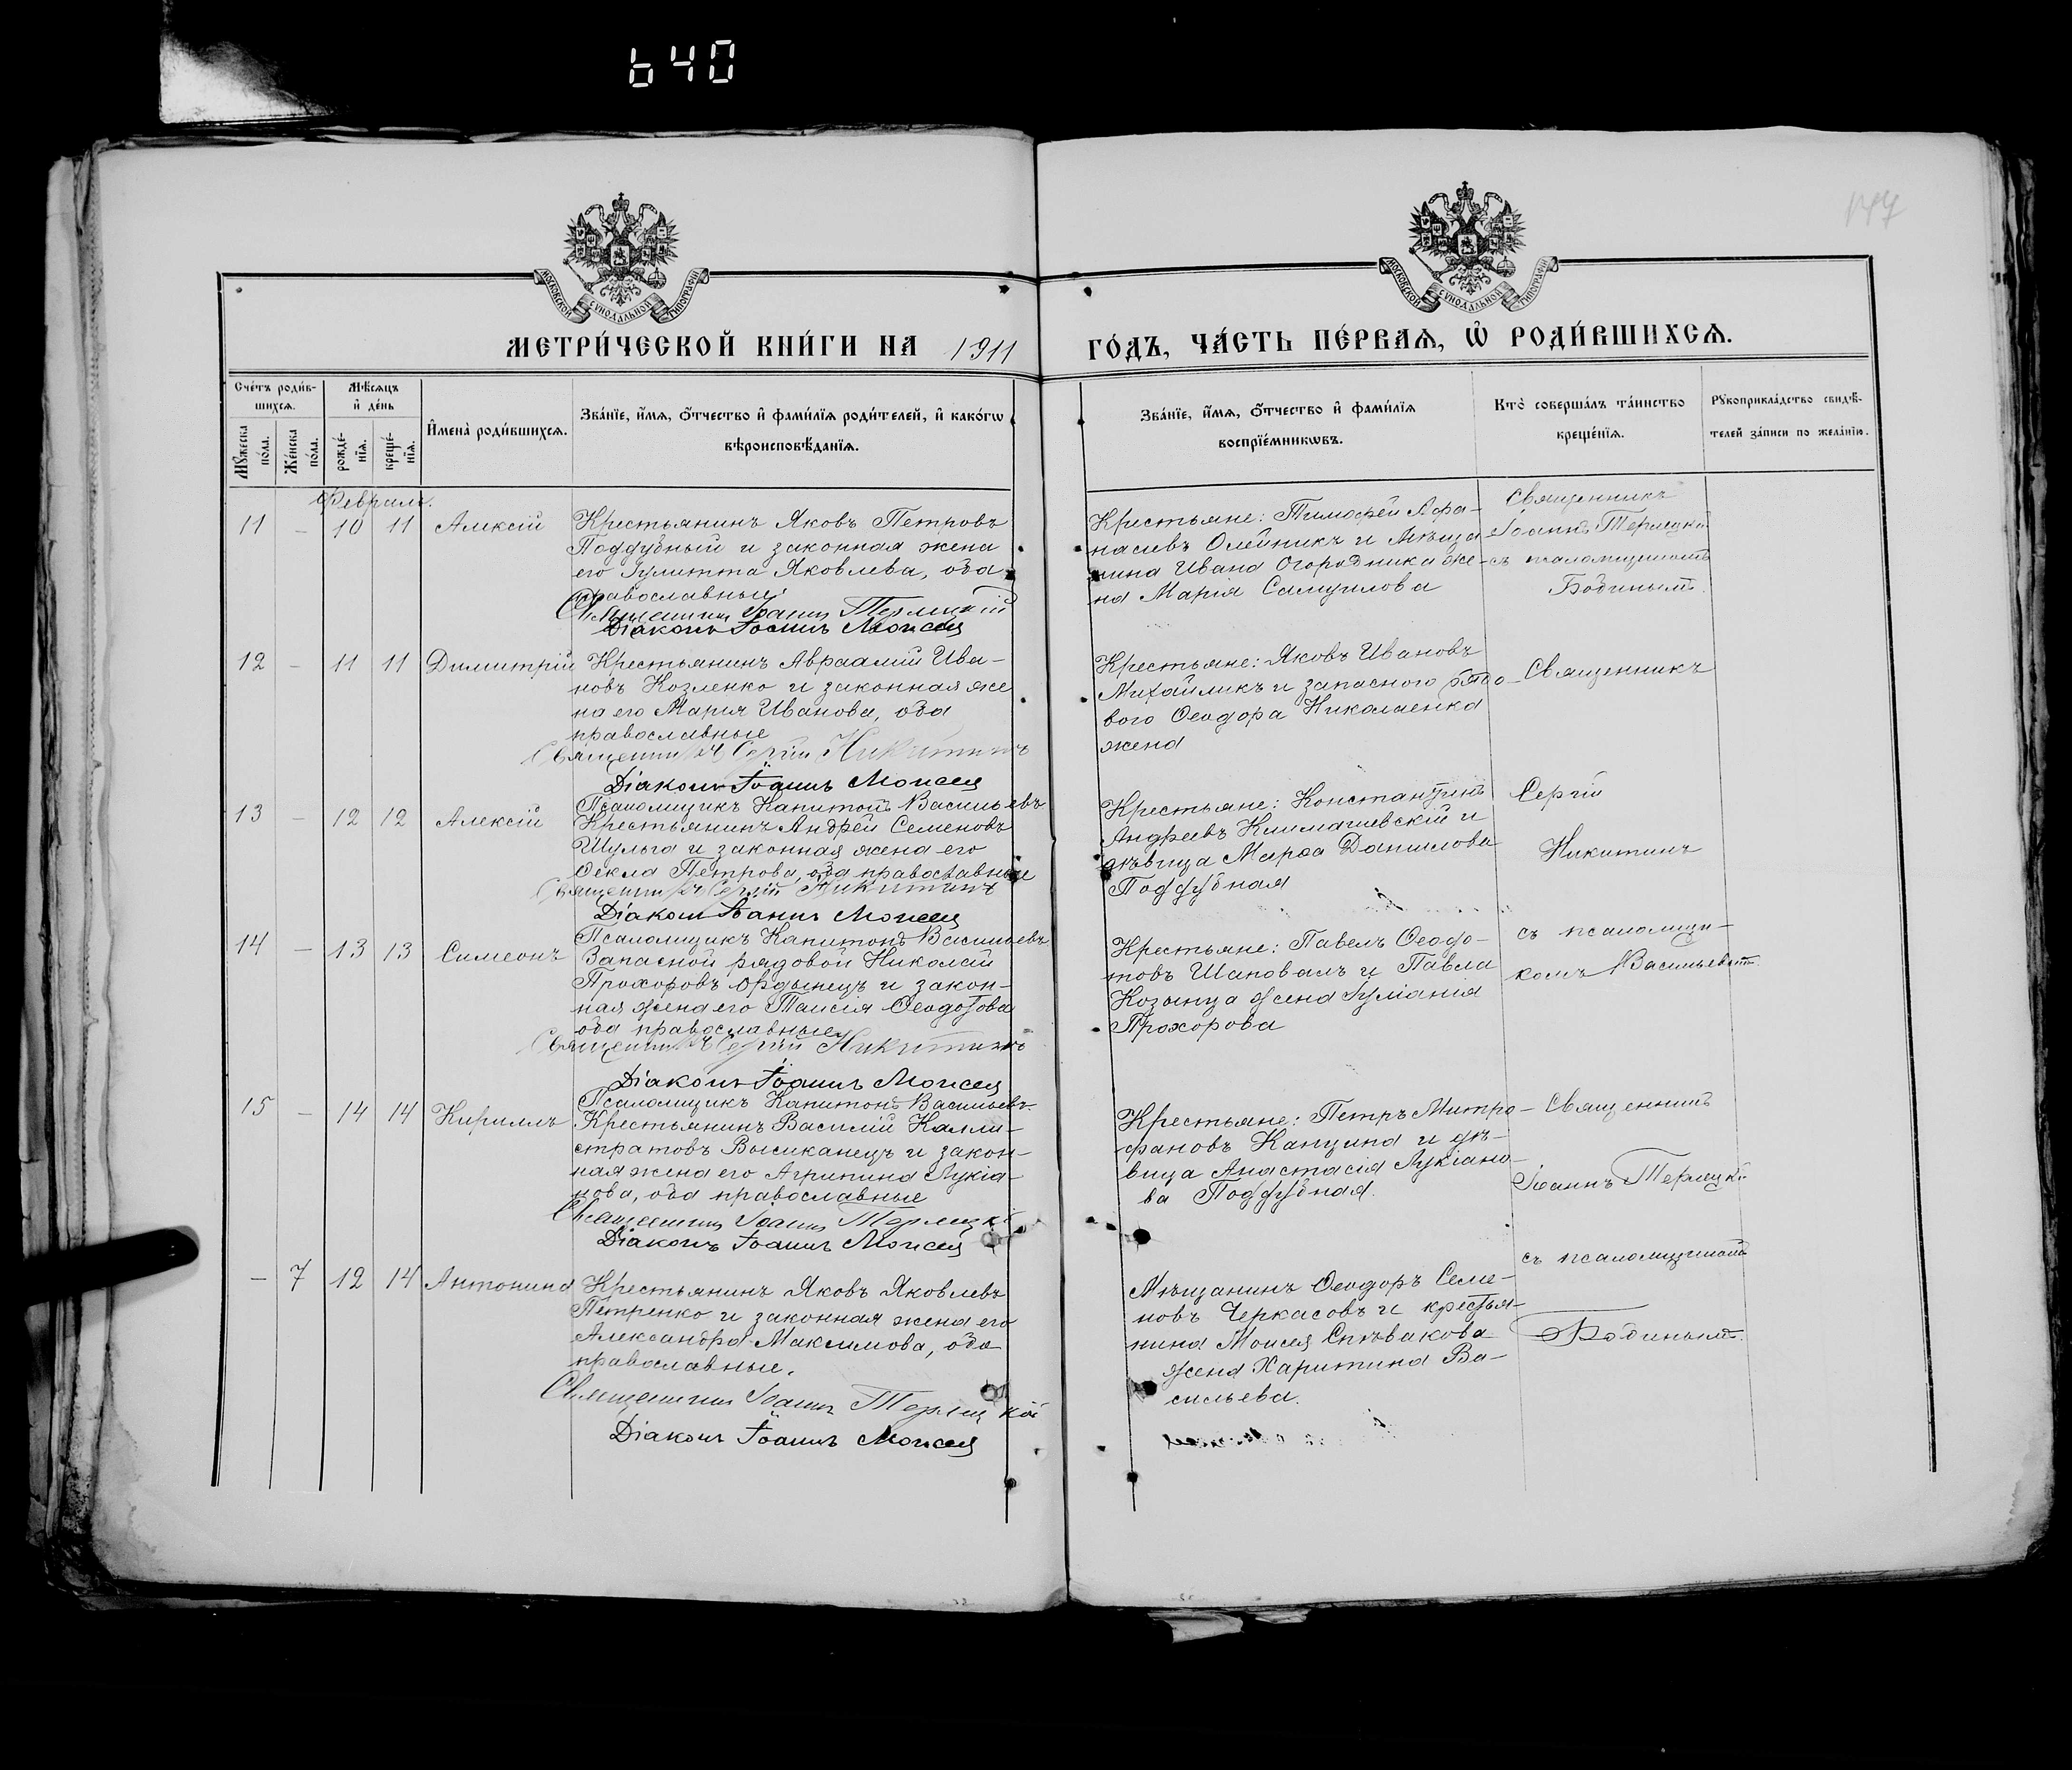 640
147
МОСКОВСКОЙ СѴНОДАЛЬНОЙ ТИПОГРАФІИ
МОСКОВСКОЙ СѴНОДАЛЬНОЙ ТИПОГРАФІИ
МЕТРИ́ЧЕСКОЙ КНИ́ГИ НА 1911 ГО́ДЪ, ЧА́СТЬ ПЕ́РВАѦ, Ѡ҆ РОДИ́ВШИХСѦ.
Сче́тъ роди́в-
шихсѧ.
Мꙋ́жеска по́ла.
Же́нска по́ла.
Мѣ́сѧцъ
и҆ де́нь
рожде́-
нїѧ.
креще́-
нїѧ.
И҆мена̀ роди́вшихсѧ.
Зва́нїе, и҆́мѧ, ѻ҆́тчество и҆ фами́лїѧ роди́телей, и҆ како́гѡ
вѣроисповѣ́данїѧ.
Зва́нїе, и҆́мѧ, ѻ҆́тчество и҆ фами́лїѧ
воспрїе́мникѡвъ.
Кто̀ соверша́лъ та́инство
креще́нїѧ.
Рꙋкоприкла́дство свидѣ́-
телей за́писи по жела́нїю.
Февраль.
11 – 10 11 Алексій
Крестьянинъ Яковъ Петровъ
Поддубный и законная жена
его Іулитта Яковлева, оба
православные.
Священникъ Іоаннъ Терлецкій
Діаконъ Іоаннъ Моисея
Крестьяне: Тимофей Афа-
насіевъ Олейникъ и Мѣща
нина Ивана Огородника же-
на Марія Самуилова
Священникъ
Іоаннъ Терлецкій
съ псаломщикомъ
Бодинымъ.
12 – 11 11 Димитрій
Крестьянинъ Авраамій Ива-
новъ Козленко и законная же
на его Марія Иванова, оба
православные
Священникъ Сергій Никитинъ
Діаконъ Іоаннъ Моисея
Псаломщикъ Капитонъ Васильевъ
Крестьяне: Яковъ Ивановъ
Михайликъ и запасного рядо-
вого Ѳеодора Николаенка
жена
Священникъ
13 – 12 12 Алексій
Крестьянинъ Андрей Семеновъ
Шульга и законная жена его
Ѳекла Петрова, оба православные
Священникъ Сергій Никитинъ
Діаконъ Іоаннъ Моисея
Псаломщикъ Капитонъ Васильевъ
Крестьяне: Константинъ
Андреевъ Климашевскій и
дѣвица Марѳа Данилова
Поддубная
Сергій
Никитинъ
14 – 13 13 Симеонъ
Запасной рядовой Николай
Прохоровъ Ордынецъ и закон-
ная жена его Таисія Ѳеодотова
оба православные
Священникъ Сергій Никитинъ
Діаконъ Іоаннъ Моисея
Псаломщикъ Капитонъ Васильевъ
Крестьяне: Павелъ Ѳеодо-
товъ Шаповалъ и Павла
Козынца жена Іуліанія
Прохорова
съ псаломщи-
комъ Васильевымъ.
15 – 14 14 Кириллъ
Крестьянинъ Василій Калли-
стратовъ Высиканецъ и закон-
ная жена его Агрипина Лукіа-
нова, оба православные
Священникъ Іоаннъ Терлецкій
Діаконъ Іоаннъ Моисея
Крестьяне: Петръ Митро-
фановъ Канцына и дѣ-
вица Анастасія Лукіано-
ва Поддубная.
Священникъ
Іоаннъ Терлецкій
– 7 12 14 Антонина
Крестьянинъ Яковъ Яковлевъ
Петренко и законная жена его
Александра Максимова, оба
православные.
Священникъ Іоаннъ Терлецкій
Діаконъ Іоаннъ Моисея
Мѣщанинъ Ѳеодоръ Семе-
новъ Черкасовъ и крестья-
нина Моисея Спѣвакова
жена Харитина Ва-
сильева.
съ псаломщикомъ
Бодинымъ.